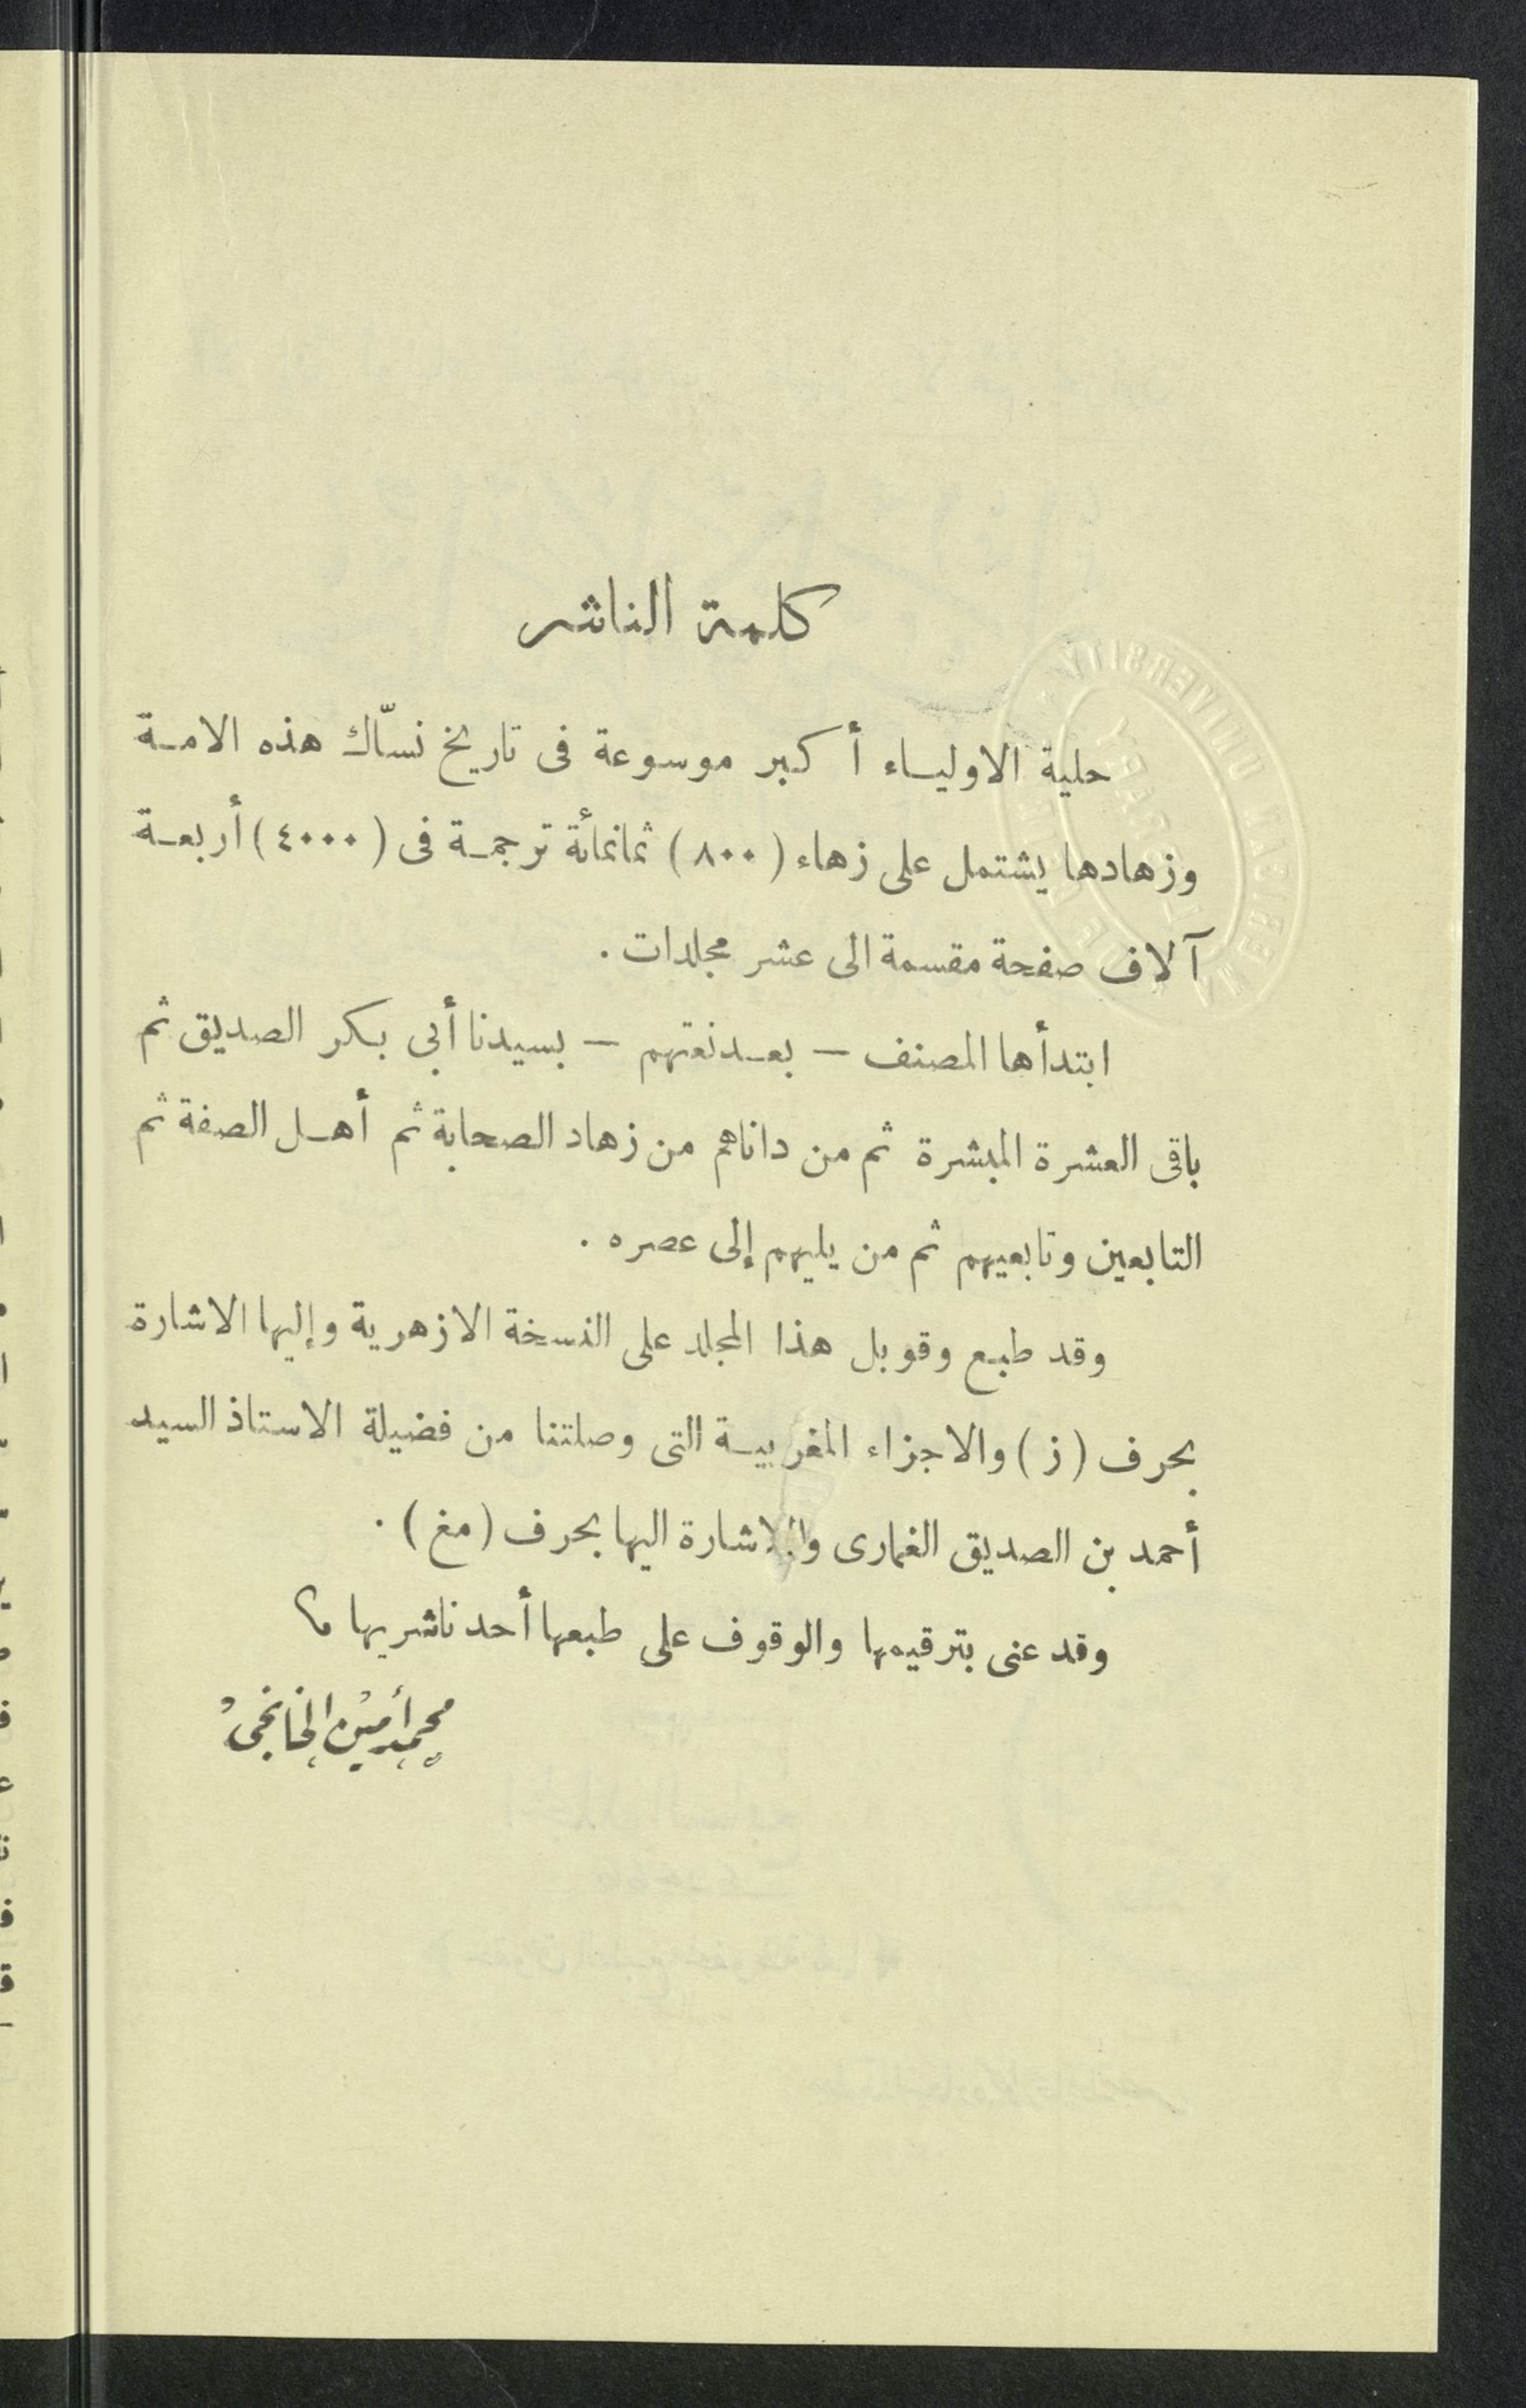 كلمة الناشر
حلية الاوليـاء أكبر موسوعة فى تاريخ نسّاك هذه الامـة
وزهادها يشتمل على زهاء (٨٠٠) ثمانمائة ترجمـة فى (٤٠٠٠) أربعـة
آلاف صفحة مقسمة الى عشر مجلدات .
ابتدأها المصنف — بعـد نعتهم — بسيدنا أبى بكر الصديق ثم
باقى العشرة المبشرة ثم من داناهم من زهاد الصحابة ثم أهـل الصفة ثم
التابعين وتابعيهم ثم من يليهم إلى عصره .
وقد طبع وقوبل هذا المجلد على النسخة الازهرية وإليها الاشارة
بحرف (ز) والاجزاء المغربيـة التى وصلتنا من فضيلة الاستاذ السيد
أحمد بن الصديق الغمارى والاشارة اليها بحرف (مغ) .
وقد عنى بترقيمها والوقوف على طبعها أحد ناشريها
محمد أمين الخانجى